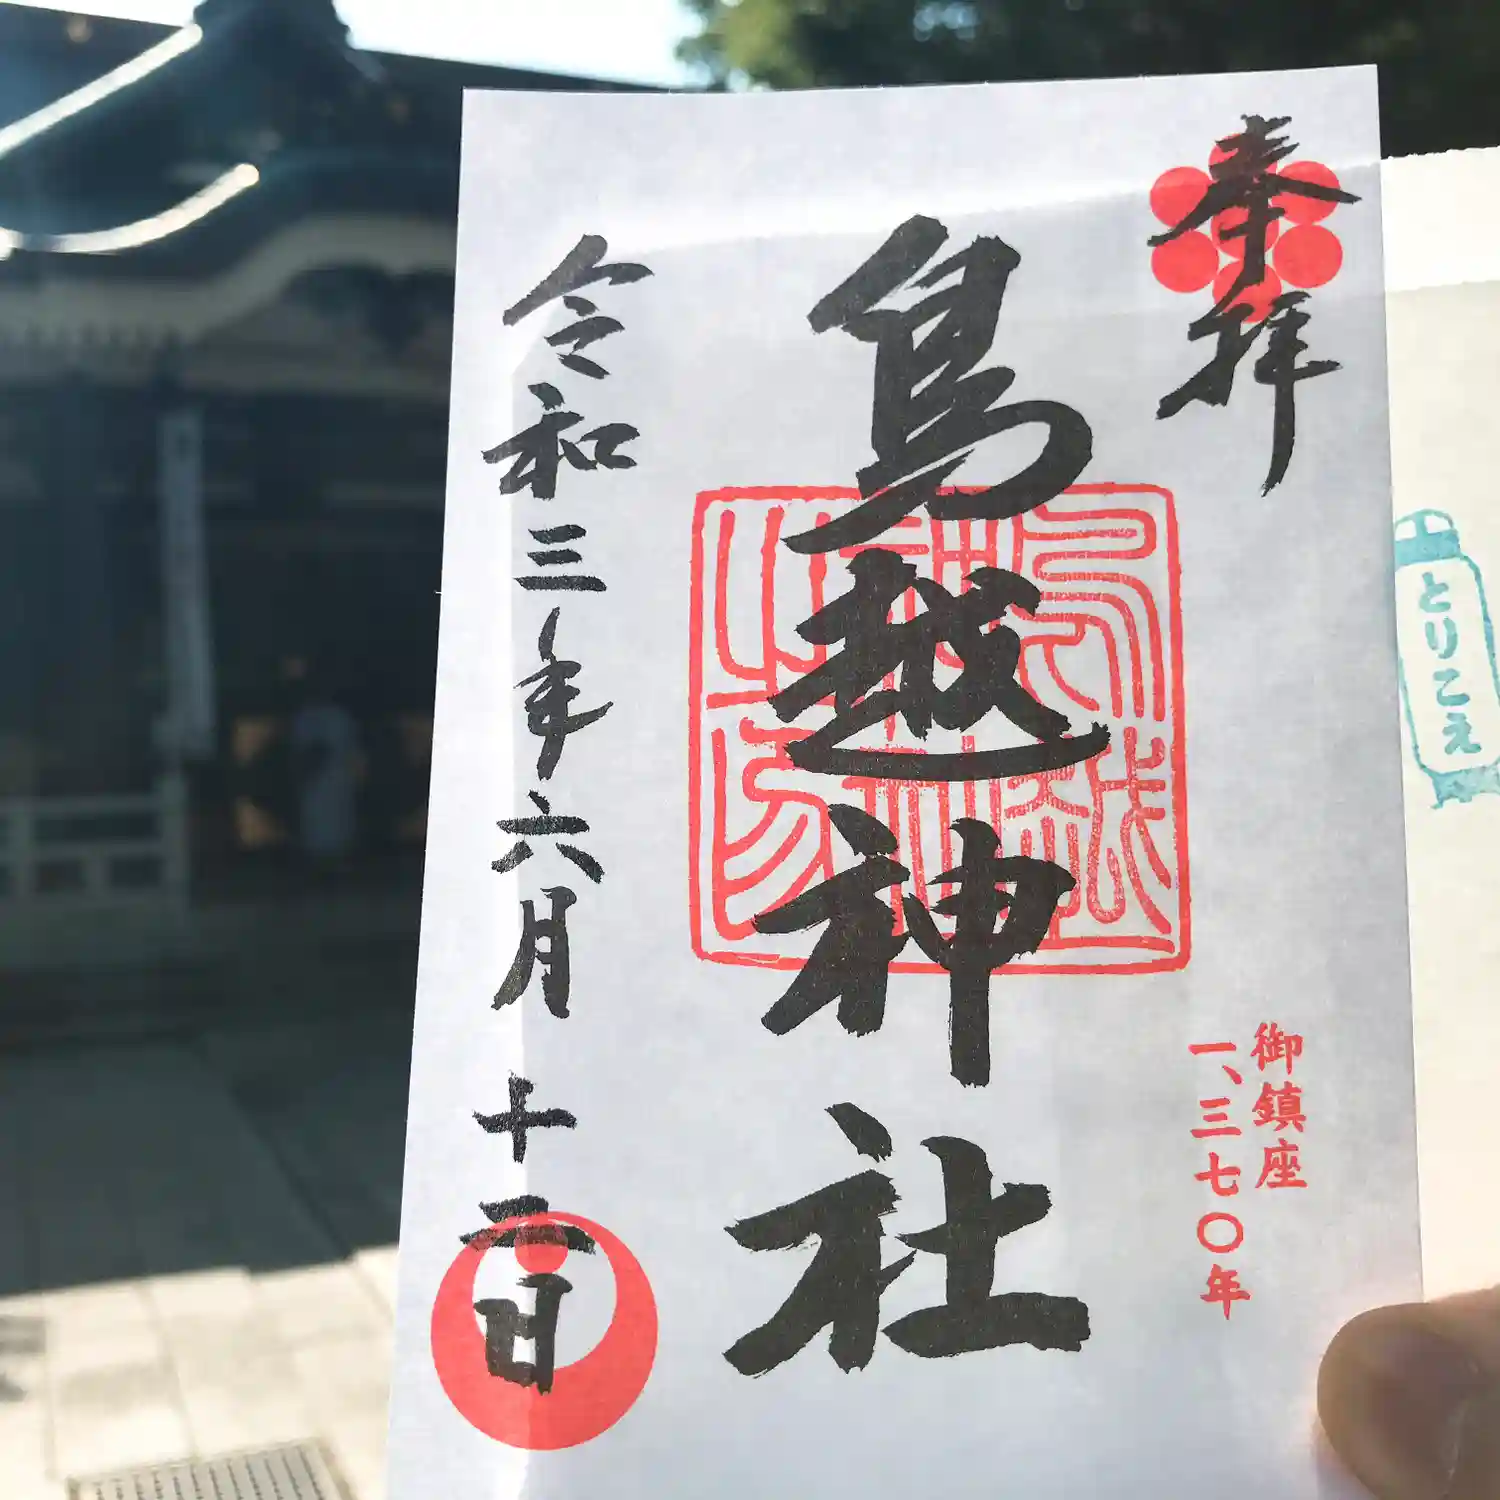 奉拝
鳥越神社
鳥越神社之印
御鎮座
一、三七〇年
令和三年六月十二日
とりこえ